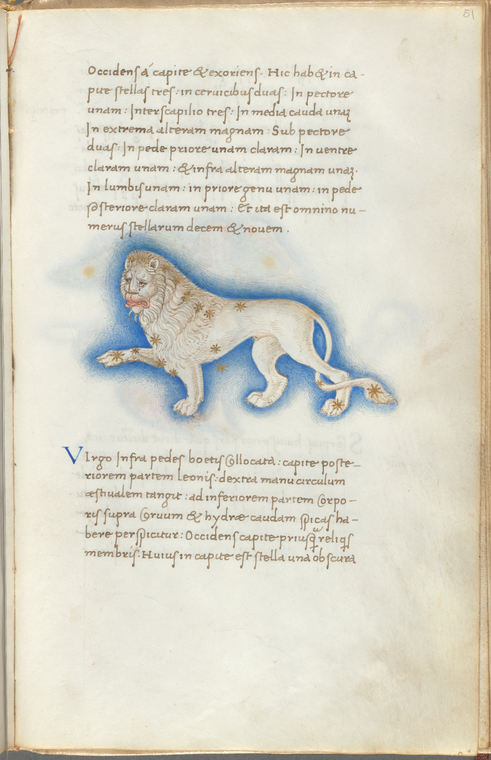 51
Occidens á capite & exoriens. Hic hab& in ca-
pite stellas tres: in ceruicibus duas: In pectore
unam: Interscapilio tres: In media cauda unaꝫ
In extrema alteram magnam: Sub pectore
duas: In pede priore unam claram: In uentre
claram unam: & infra alteram magnam unaꝫ.
In lumbis unam: in priore genu unam: in pede
posteriore claram unam: Et ita est omnino nu-
merus stellarum decem & nouem.
VIrgo Infra pedes boetis Collocata: capite poste-
riorem partem leonis: dextra manu circulum
æstiualem tangit: ad inferiorem partem Corpo-
ris supra Coruum & hydræ caudam spicas ha-
bere perspicitur: Occidens capite priusq̃ reliq̃s
membris. Huius in capite est stella una obscura